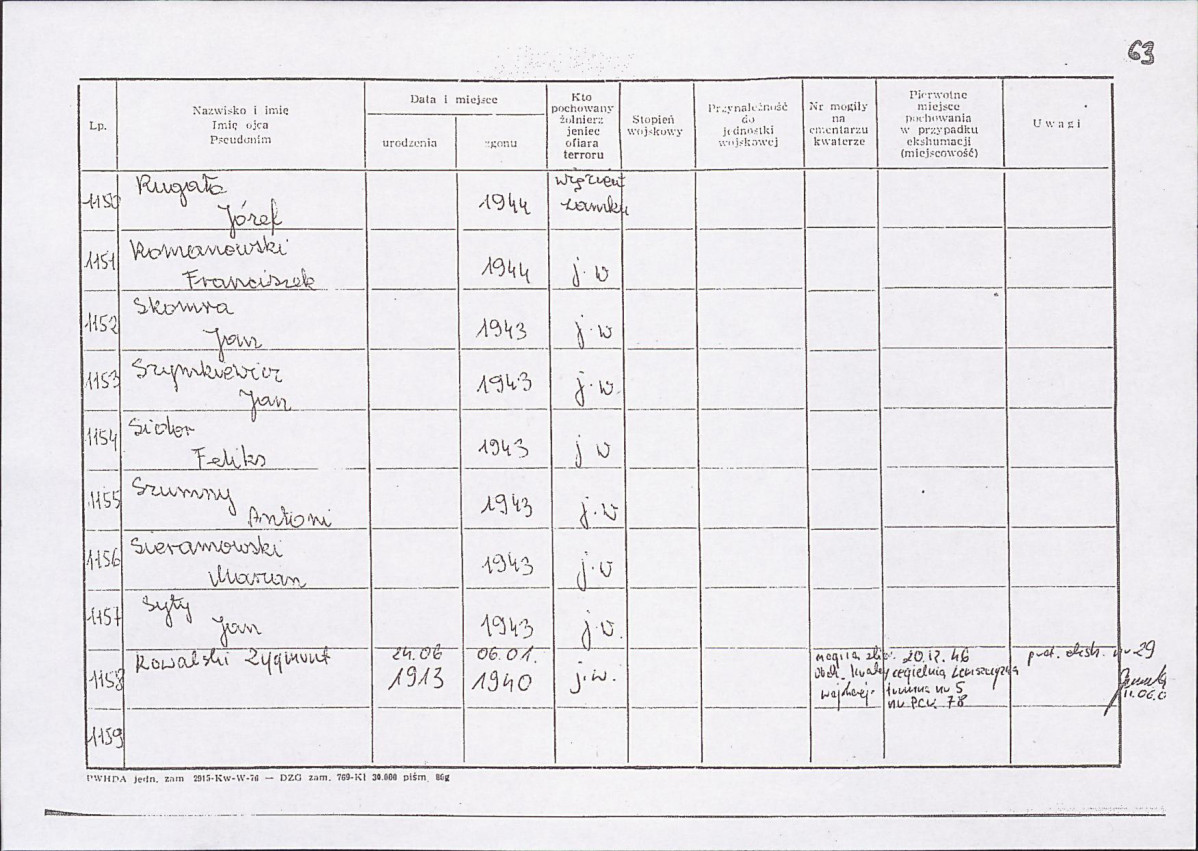 63
Lp.
Nazwisko i imię
Imię ojca
Pseudonim
Data i miejsce
urodzenia
zgonu
Kto
pochowany
żołnierz
jeniec
ofiara
terroru
Stopień
wojskowy
Przynależność
do
jednostki
wojskowej
Nr mogiły
na
cmentarzu
kwaterze
Pierwotne
miejsce
pochowania
w przypadku
ekshumacji
(miejscowość)
Uwagi
1150 Rugała 1944 więzień
Józef zamku
1151 Romanowski 1944 j.w
Franciszek
1152 Skomra 1943 j.w
Jan
1153 Szymkiewicz 1943 j.w.
Jan
1154 Sidor 1943 j w
Feliks
1155 Szumny 1943 j.w
Antoni
1156 Sieramowski 1943 j.w
Marian
1157 Syty 1943 j.w.
Jan
1158 Kowalski Zygmunt 24.06 1913 06.01. 1940 j.w.
mogiła zbior.
20.12.46
cegielnia
trumna nr 5
nr PCK 78
prot. eksh. nr 29
11.06.0
1159
PWHDA jedn. zam 2915-Kw-W-76 — DZG zam. 769-Kl 30.000 piśm. 80g